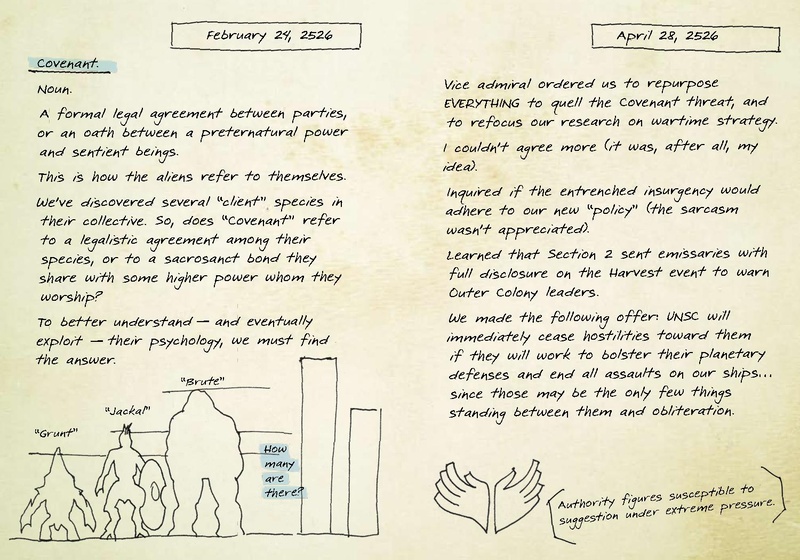 February 24, 2526
Covenant.
Noun.
A formal legal agreement between parties,
or an oath between a preternatural power
and sentient beings.
This is how the aliens refer to themselves.
We've discovered several "client" species in
their collective. So, does "Covenant" refer
to a legalistic agreement among their
species, or to a sacrosanct bond they
share with some higher power whom they
worship?
To better understand — and eventually
exploit — their psychology, we must find
the answer.
"Grunt"
"Jackal"
"Brute"
How
many
are
there?
April 28, 2526
Vice admiral ordered us to repurpose
EVERYTHING to quell the Covenant threat, and
to refocus our research on wartime strategy.
I couldn't agree more (it was, after all, my
idea).
Inquired if the entrenched insurgency would
adhere to our new "policy" (the sarcasm
wasn't appreciated).
Learned that Section 2 sent emissaries with
full disclosure on the Harvest event to warn
Outer Colony leaders.
We made the following offer: UNSC will
immediately cease hostilities toward them
if they will work to bolster their planetary
defenses and end all assaults on our ships...
since those may be the only few things
standing between them and obliteration.
Authority figures susceptible to
suggestion under extreme pressure.